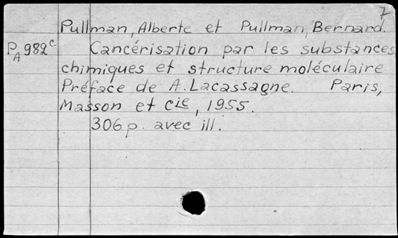 7
Pullman, Alberte et Pullman, Bernard.
PA 982c Cancérisation par les substances
chimiques et structure moléculaire
Préface de A. Lacassagne. Paris,
Masson et Cie, 1955.
306 p. avec ill.